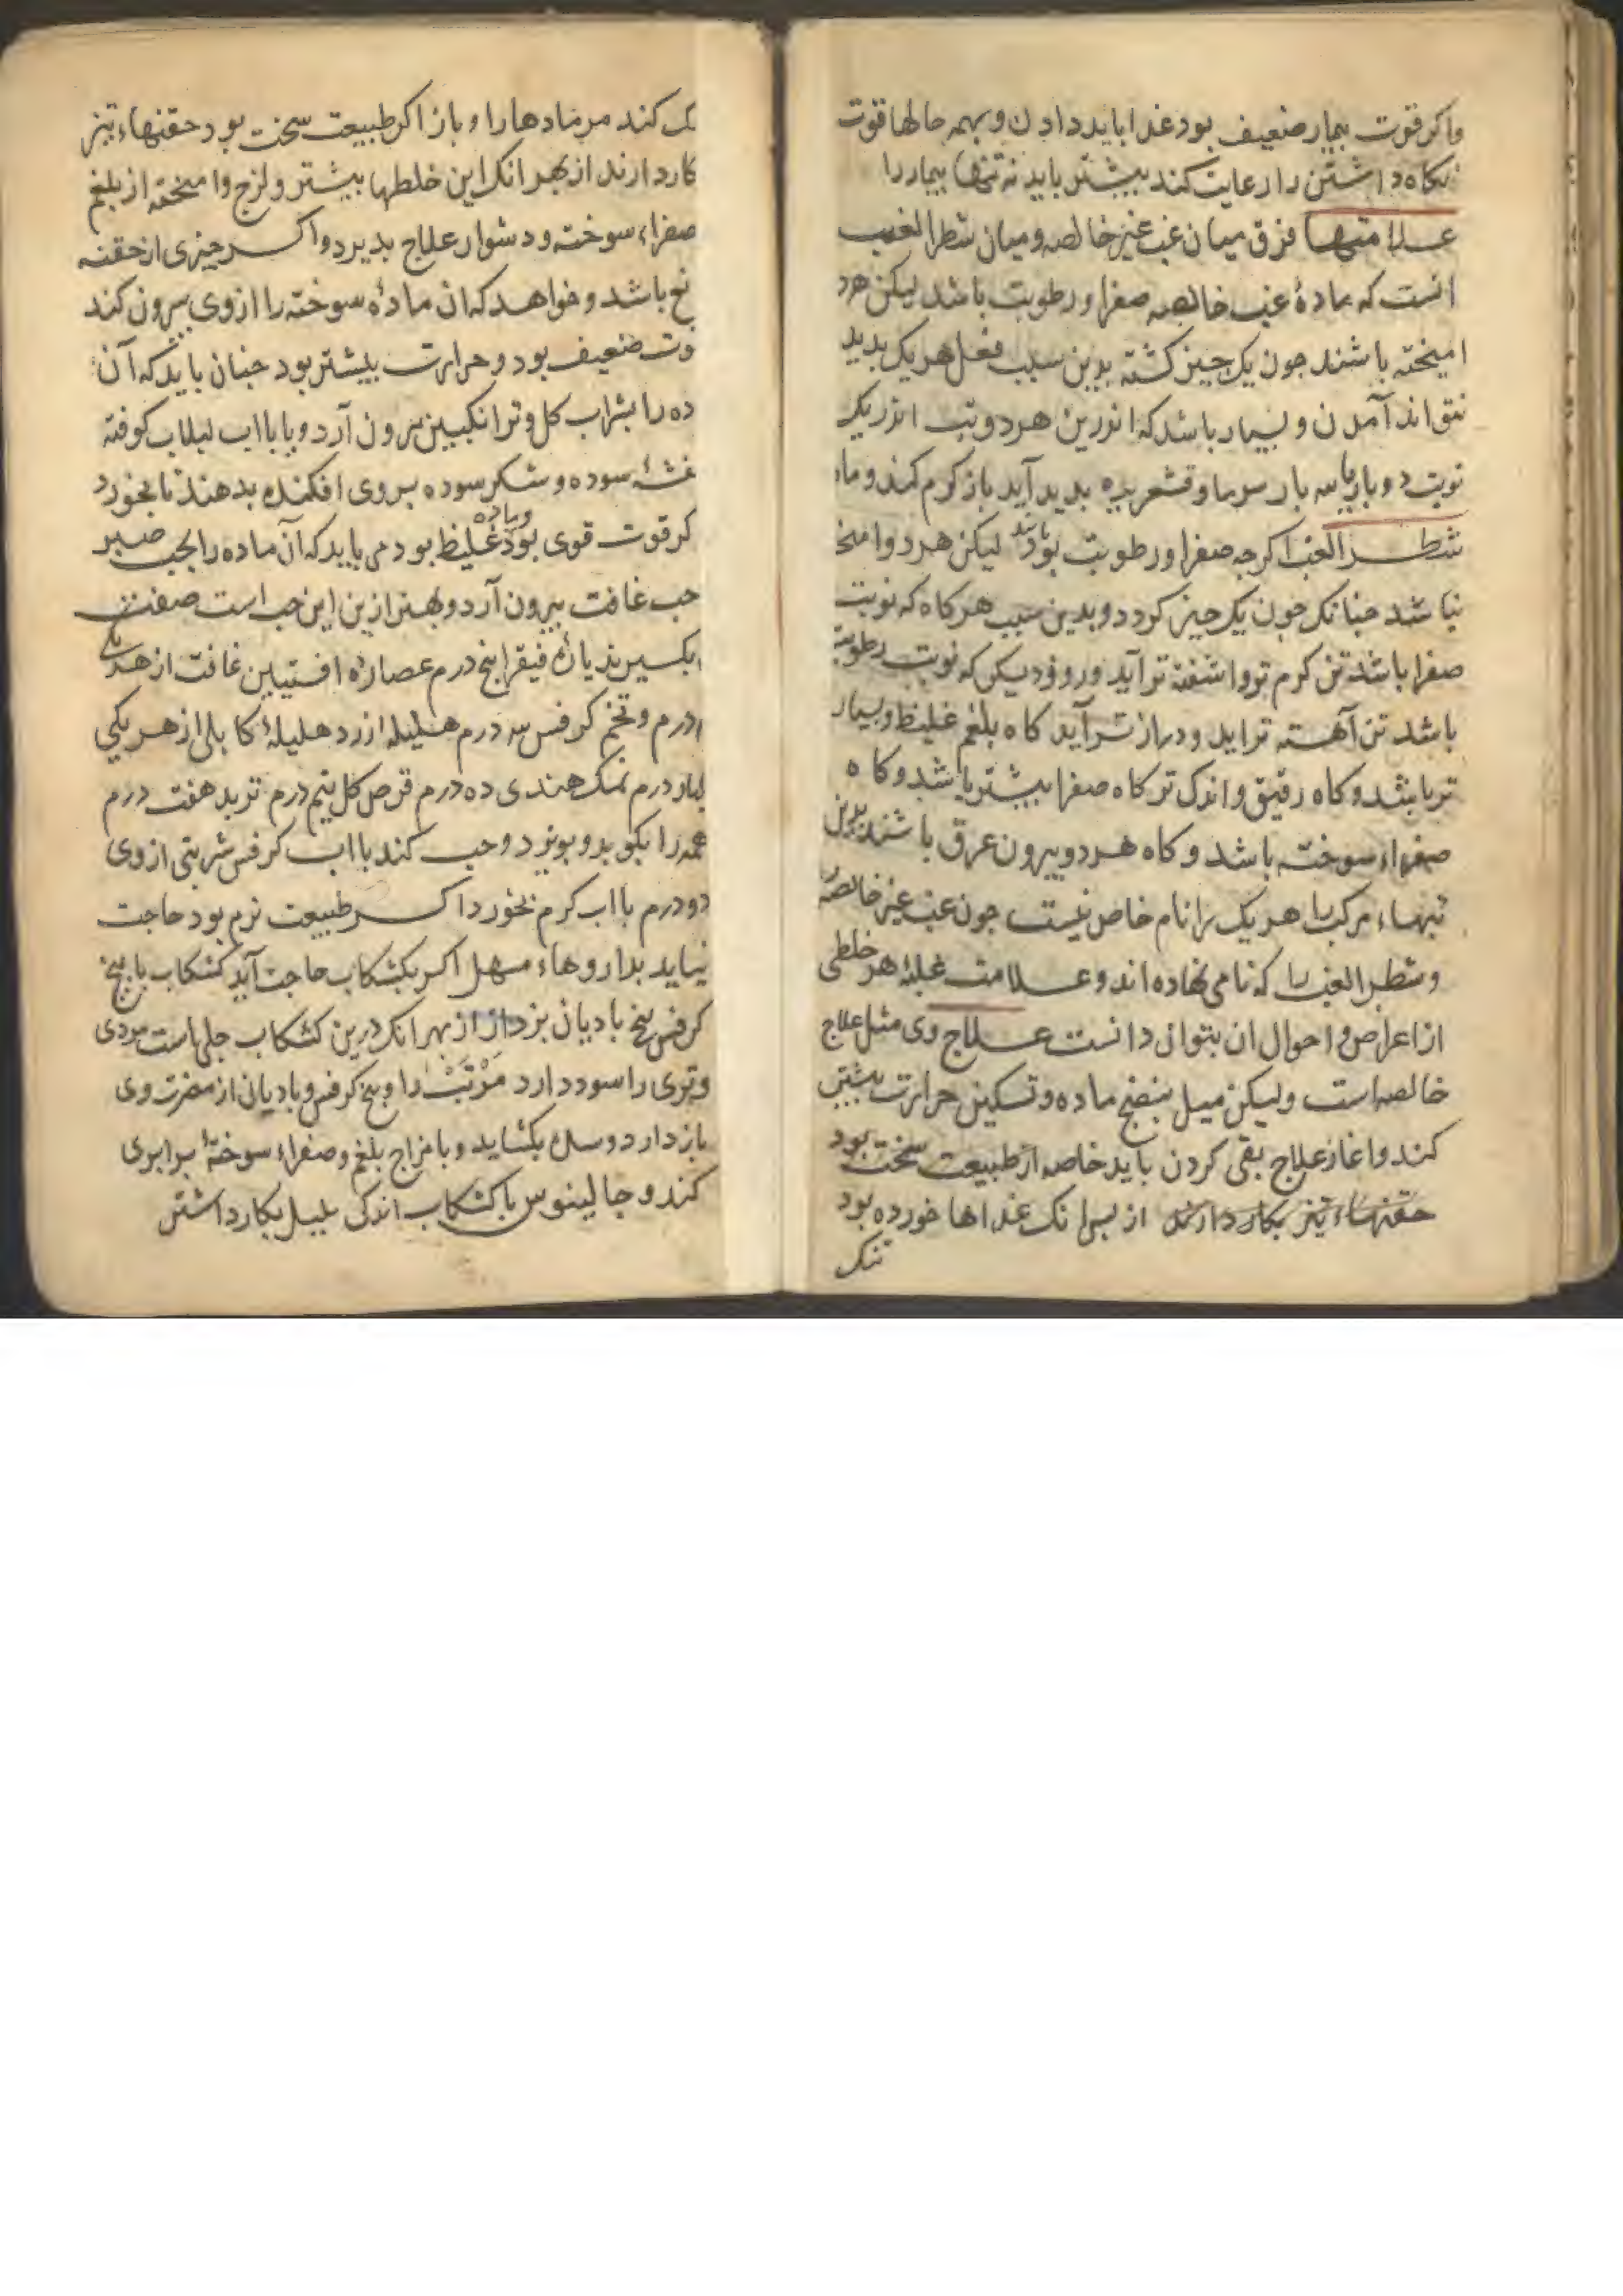 واکر قوت بیمار ضعیف بود غذا باید دادن و بهمه حالها قوت
نکاه داشتن را رعایت کند بیشتر باید نه تنها بیمار را
علامتها فرق میان غب غیر خالصه و میان شطر الغب
انست که مادهٔ غب خالصه صفرا و رطوبت باشد لیکن هرد
امیخته باشند جون یک جیز کشته بدین سبب فعل هر یک بدید
نتواند آمدن و بسیار باشد که اندرین هر دو تب اندر یک
نوبت دوبار یا سه بار سرما و قشعریره بدید آید باز کرم کند و ماد
شطر الغب اکرجه صفرا و رطوبت بود لیکن هر دو امخ
نباشد جنانک جون یک جیز کردد و بدین سبب هرکاه که نوبت
صفرا باشد تن کرم تر و اشفته تر آید و روز دیکر که نوبت رطوبت
باشد تن آهسته تر اید و دراز تر آید کاه بلغم غلیظ و بسیار
تر باشد و کاه رقیق و اندک تر کاه صفرا بیشتر باشد و کاه
صفراء سوخته باشد و کاه هر دو بیرون عرق باشند بدین
تبهاء مرکب را هر یک را نام خاص نیست جون غب غیر خالصه
و شطر الغب را که نامی نهاده اند و علامت غلبهٔ هر خلطی
از اعراض و احوال ان بتوان دانست علاج وی مثل علاج
خالصه است ولیکن میل بنضج ماده و تسکین حرارت بیشتر
کند و اغاز علاج بقی کردن باید خاصه ار طبیعت سخت بود
حقنهاء تیز بکار دارند از بس انک غذاها خورده بود
تنک
ک کند مر مادها را و باز اکر طبیعت سخت بود حقنهاء تیز
کار دارند از بهر انک این خلطها بیشتر و لزج و امخته از بلغم
صفراء سوخته و دشوار علاج بدیرد و اکر جیزی از حقنه
نخ باشد و خواهد که ان مادهٔ سوخته را از وی بیرون کند
وت ضعیف بود و حرارت بیشتر بود جنان باید که آن
ده را بشراب کل و ترانکبین بیرون آرد و یا بااب لبلاب کوفته
سوده و شکر سوده بر وی افکنده بدهند تا بخورد
کر قوت قوی بود و ماده غلیظ بود می باید که آن ماده را بحب صبر
حب غافت بیرون آرد و بهتر ازین این حب است صفت
بکیرند یارهٔ فیقرا بنج درم عصارهٔ افسنتین غافت از هر یکی
درم و تخم کرفس سه درم هلیلهٔ زرد هلیلهٔ کابلی از هر یکی
درم نمک هندی ده درم قرص کل نیم درم تربد هفت درم
همه را بکوبد و ببیزد و حب کند بااب کرفس شربتی از وی
دو درم بااب کرم بخورد اکر طبیعت نرم بود حاجت
نیاید بداروهاء مسهل اکر بکشکاب حاجت آید کشکاب با بیخ
کرفس بیخ بادیان بزد از از بهر انک درین کشکاب جلی است سردی
و تری را سود دارد مر تب را و بیخ کرفس و بادیان از مضرت وی
باز دارد و سده بکشاید و با مزاج بلغم و صفراء سوخته برابری
کند و جالینوس با کشکاب اندکی بلبل بکار داشتن